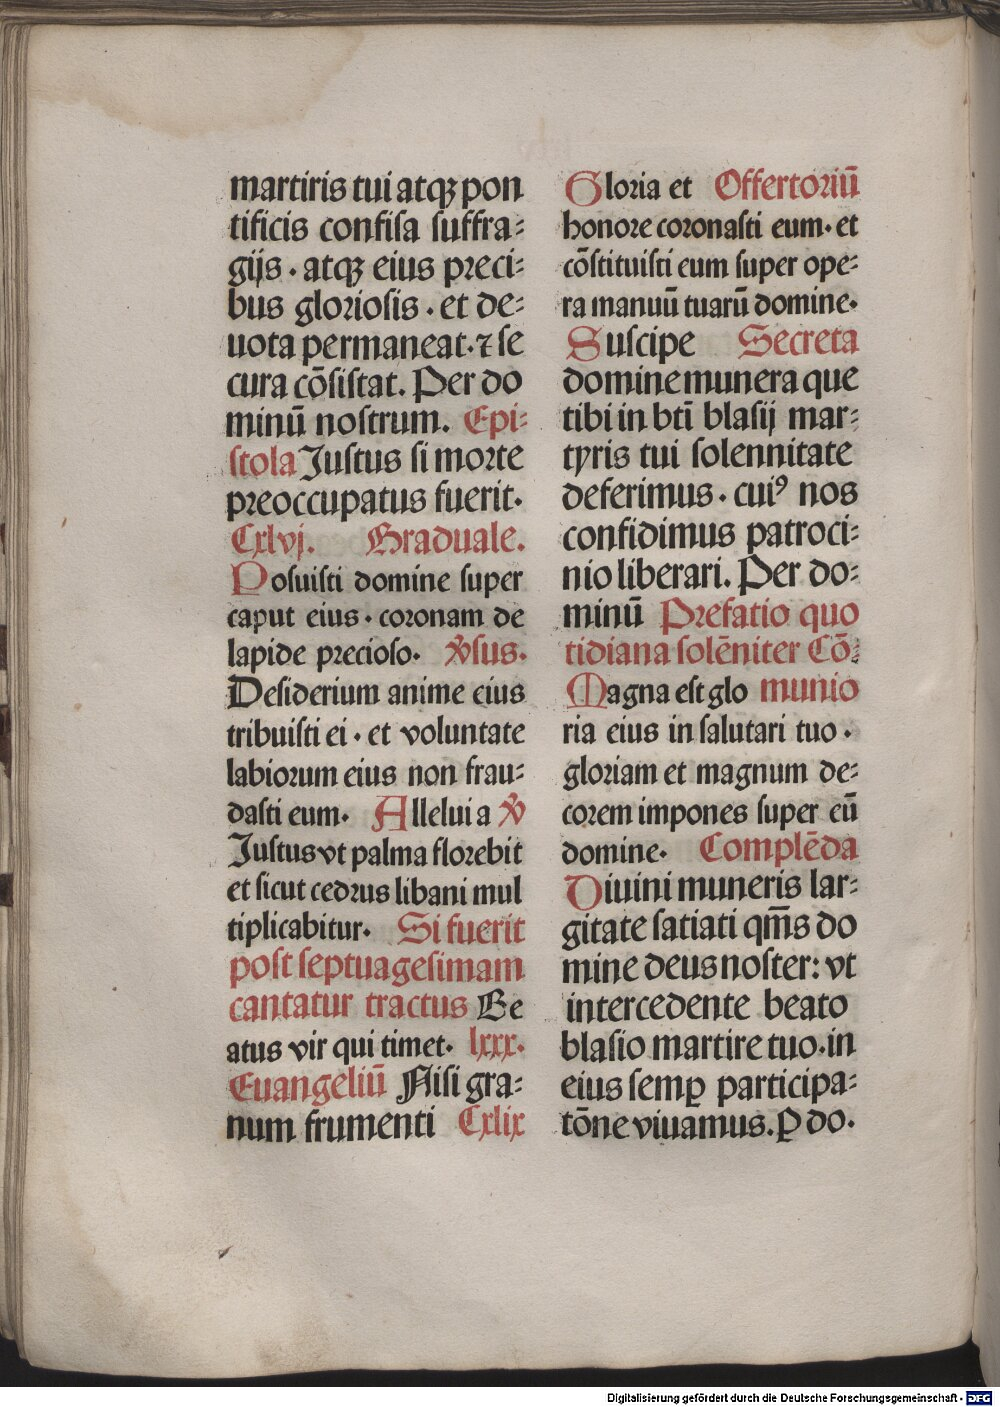 martiris tui atqꝫ pon
tificis confisa suffra-
gijs · atqꝫ eius preci-
bus gloriosis · et de-
uota permaneat · ⁊ se
cura cōsistat. Per do
minū nostrum. Epi-
stola Justus si morte
preoccupatus fuerit.
Cxlvj. Graduale.
Posuisti domine super
caput eius · coronam de
lapide precioso. v̄sus.
Desiderium anime eius
tribuisti ei · et voluntate
labiorum eius non frau-
dasti eum. Allelui a v̄
Justus vt palma florebit
et sicut cedrus libani mul
tiplicabitur. Si fuerit
post septuagesimam
cantatur tractus Be
atus vir qui timet. lxxx.
Euangeliū Nisi gra-
num frumenti Cxlix
Gloria et Offertoriū
honore coronasti eum · et
cōstituisti eum super ope-
ra manuū tuarū domine.
Suscipe Secreta
domine munera que
tibi in btī blasij mar-
tyris tui solennitate
deferimus · cuiꝰ nos
confidimus patroci-
nio liberari. Per do-
minū Prefatio quo
tidiana solēniter Cō-
Magna est glo munio
ria eius in salutari tuo ·
gloriam et magnum de-
corem impones super eū
domine. Complēda
Diuini muneris lar-
gitate satiati qm̄s do
mine deus noster: vt
intercedente beato
blasio martire tuo · in
eius semꝑ participa-
tōne viuamus. Ꝑ do.
Digitalisierung gefördert durch die Deutsche Forschungsgemeinschaft - DFG